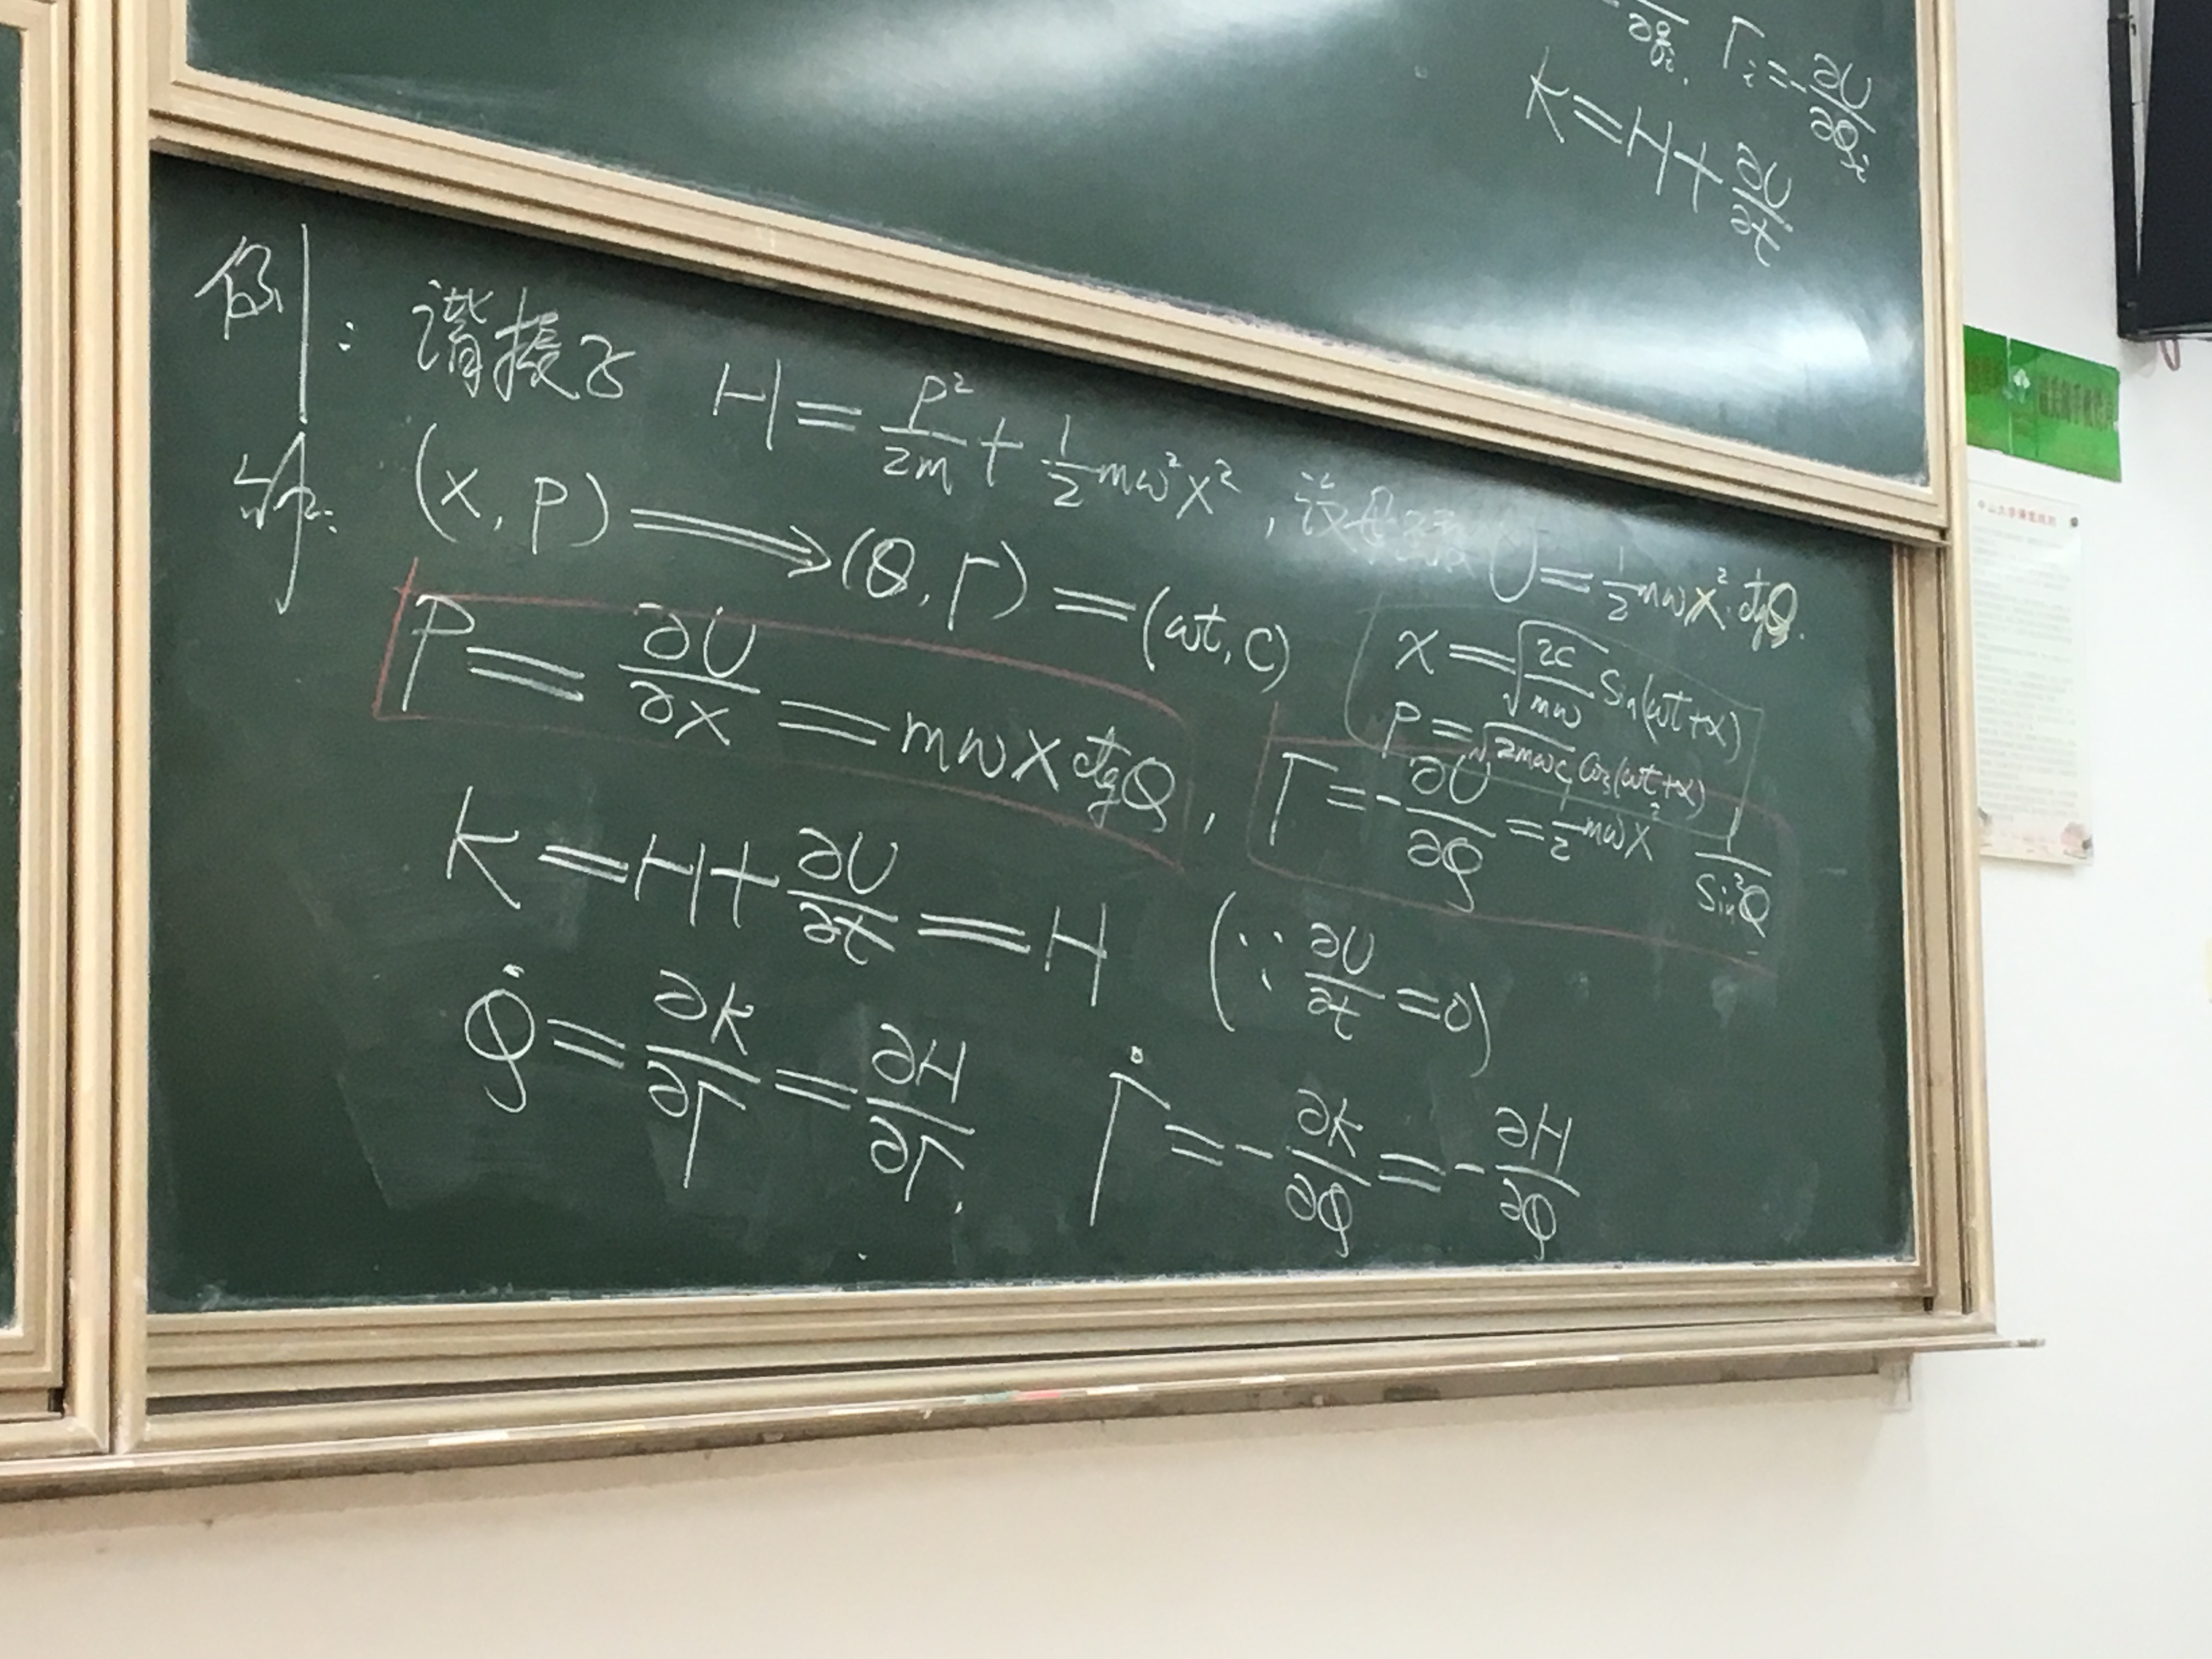 ∂q_i, Γ_i = -∂U/∂Q_i
K = H + ∂U/∂t
例: 谐振子 H = P²/2m + 1/2 mω²x², 设母函数 U = 1/2 mωx² ctgQ.
解: (x, p) ⟹ (Q, Γ) = (ωt, C)
x = √(2C/mω) Sin(ωt+α)
P = √(2mωC) Cos(ωt+α)
P = ∂U/∂x = mωx ctgQ, Γ = -∂U/∂Q = 1/2 mωx² 1/Sin²Q
K = H + ∂U/∂t = H (∵ ∂U/∂t = 0)
Q̇ = ∂K/∂Γ = ∂H/∂Γ, Γ̇ = -∂K/∂Q = -∂H/∂Q